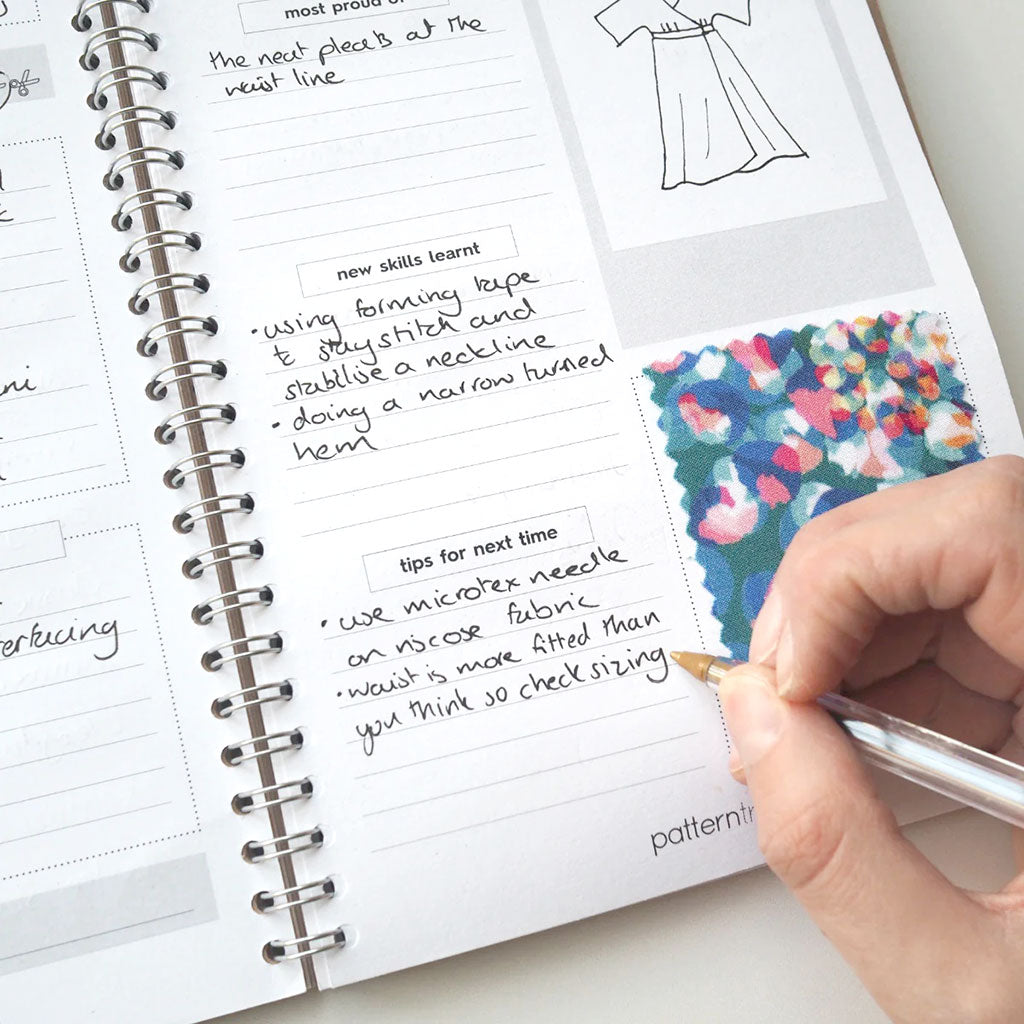 most proud of
the neat pleats at the
waist line
new skills learnt
• using forming tape
to staystitch and
stablise a neckline
• doing a narrow turned
hem
tips for next time
• use microtex needle
on viscose fabric
• waist is more fitted than
you think so check sizing
patterntr
ni
erfacing